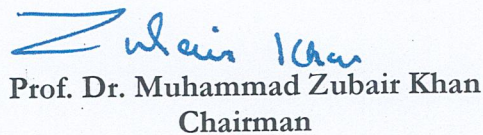 Zubair Khan
Prof. Dr. Muhammad Zubair Khan
Chairman